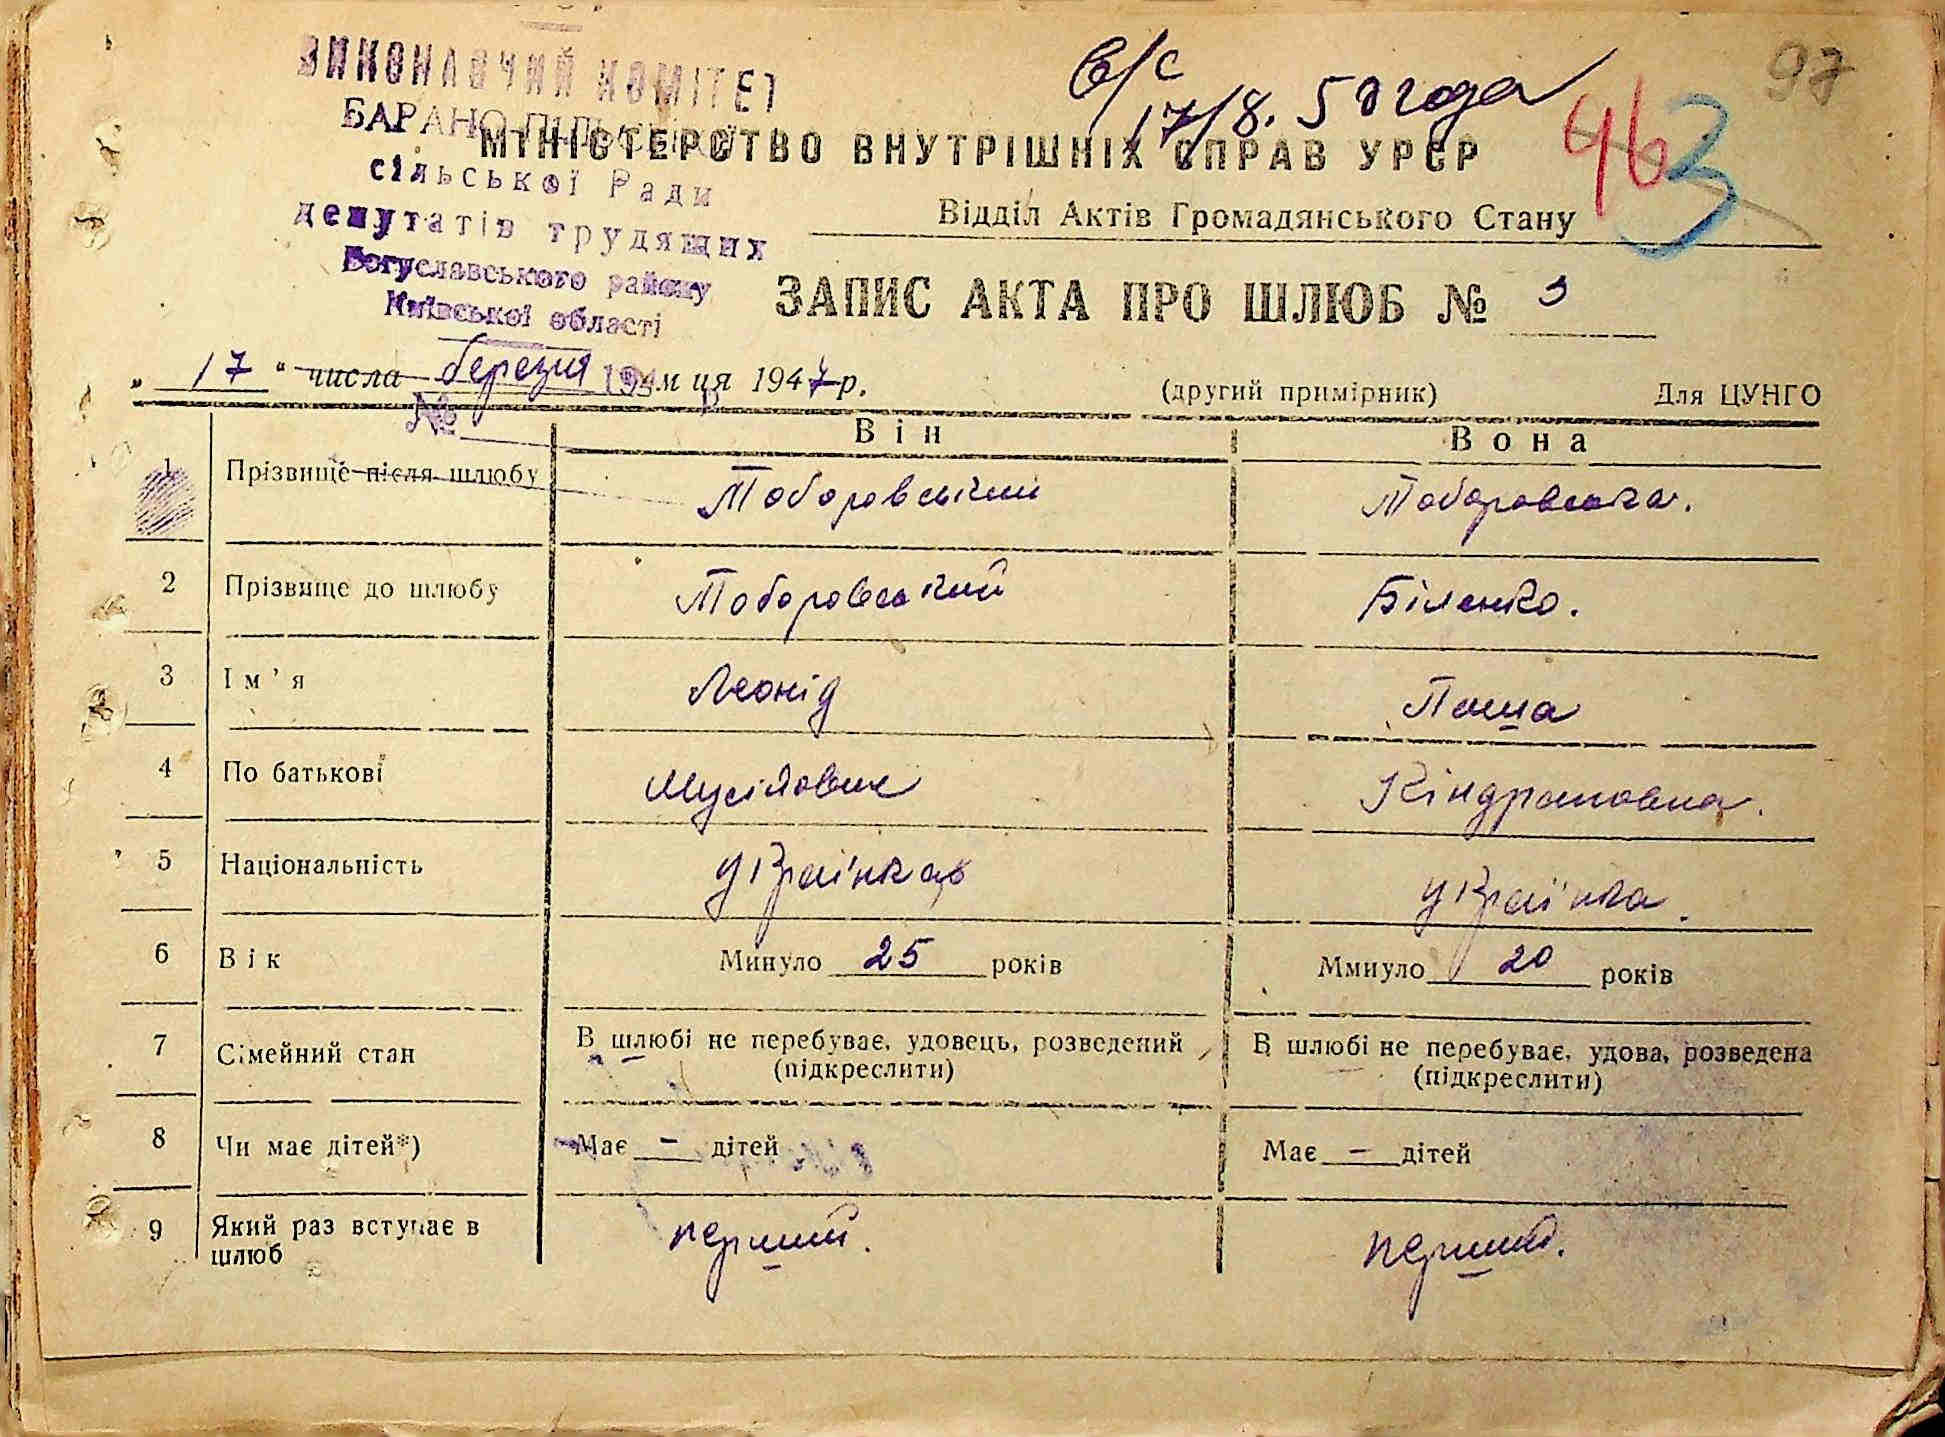 97
в/с
17/8. 50 года
463
ВИКОНАВЧИЙ КОМІТЕТ
БАРАНО-ПІЛЬСЬКОЇ
сільської Ради
депутатів трудящих
Богуславського району
Київської області
194 р.
№
МІНІСТЕРСТВО ВНУТРІШНІХ СПРАВ УРСР
Відділ Актів Громадянського Стану
ЗАПИС АКТА ПРО ШЛЮБ № 3
„ 17 " числа березня м ця 1947 р. (другий примірник) Для ЦУНГО
Він Вона
1 Прізвище після шлюбу Тоборовський Тоборовська.
2 Прізвище до шлюбу Тоборовський Біленко.
3 Ім'я Леонід Паша
4 По батькові Мусійович Кіндратовна.
5 Національність українець українка.
6 Вік Минуло 25 років Ммнуло 20 років
7 Сімейний стан В шлюбі не перебуває, удовець, розведений (підкреслити) В шлюбі не перебуває, удова, розведена (підкреслити)
8 Чи має дітей*) Має - дітей Має - дітей
9 Який раз вступає в шлюб перший. перший.